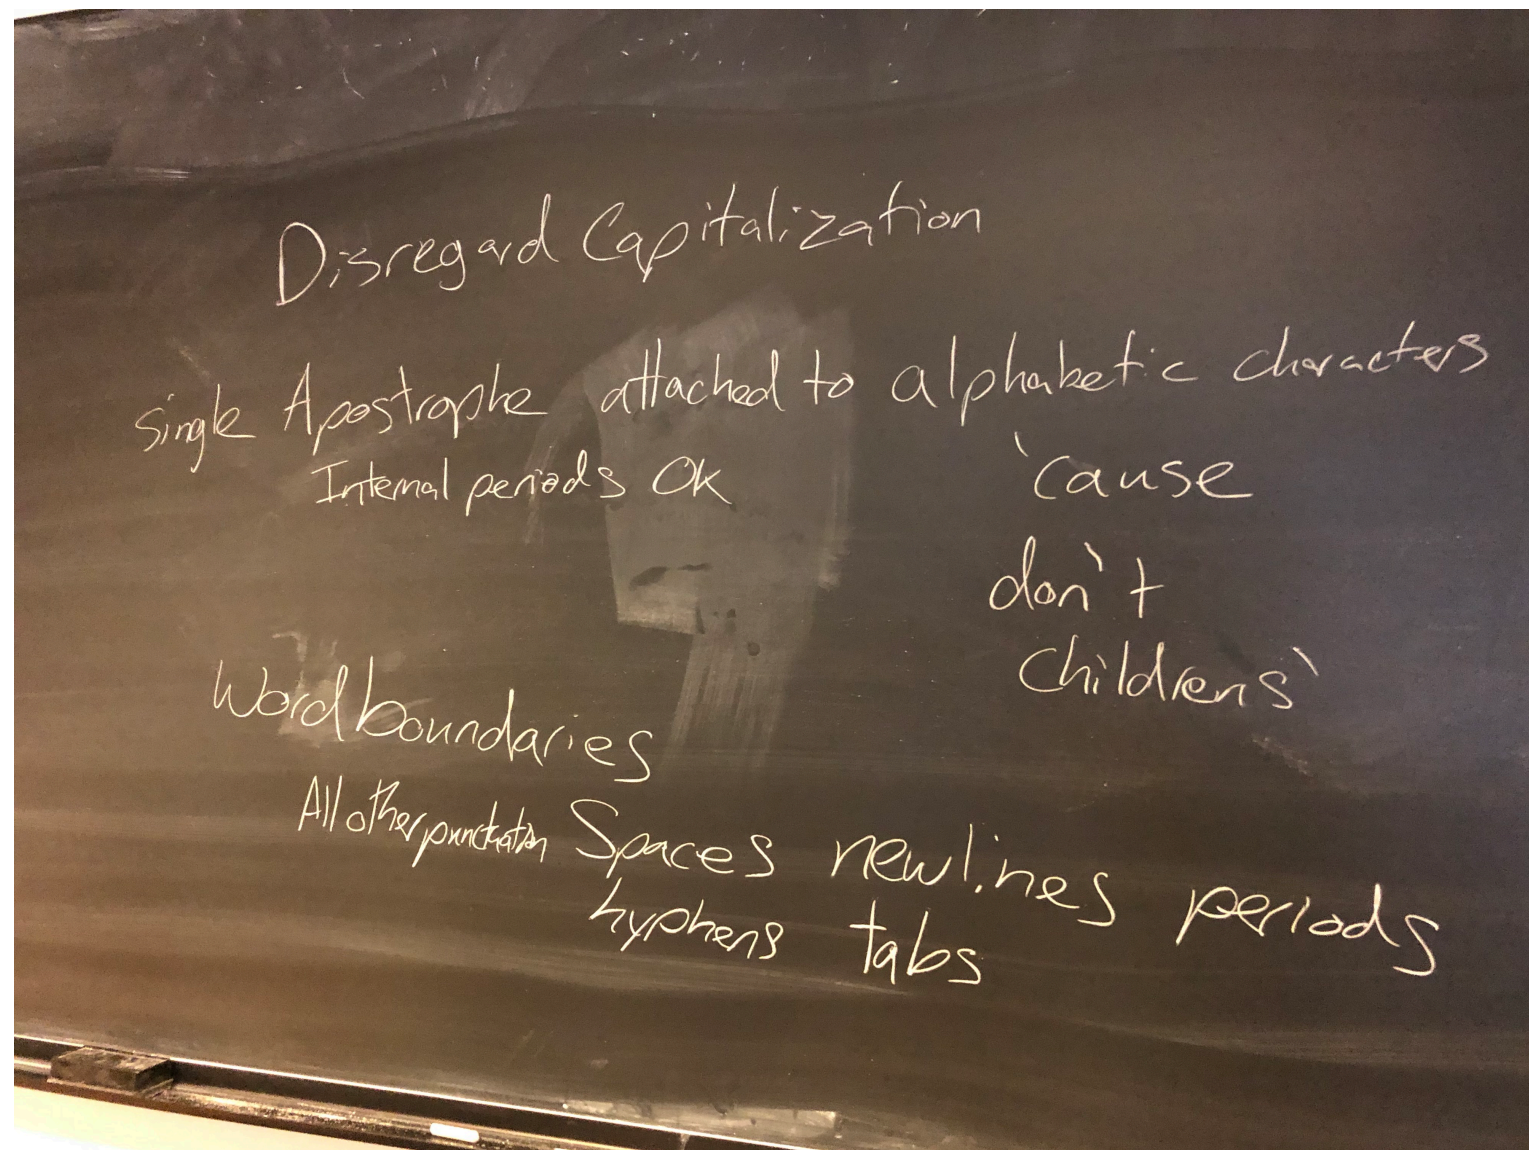 Disregard Capitalization
single Apostrophe attached to alphabetic characters
Internal periods OK
'cause
don't
childrens'
Word boundaries
All other punctuation Spaces newlines periods
hyphens tabs